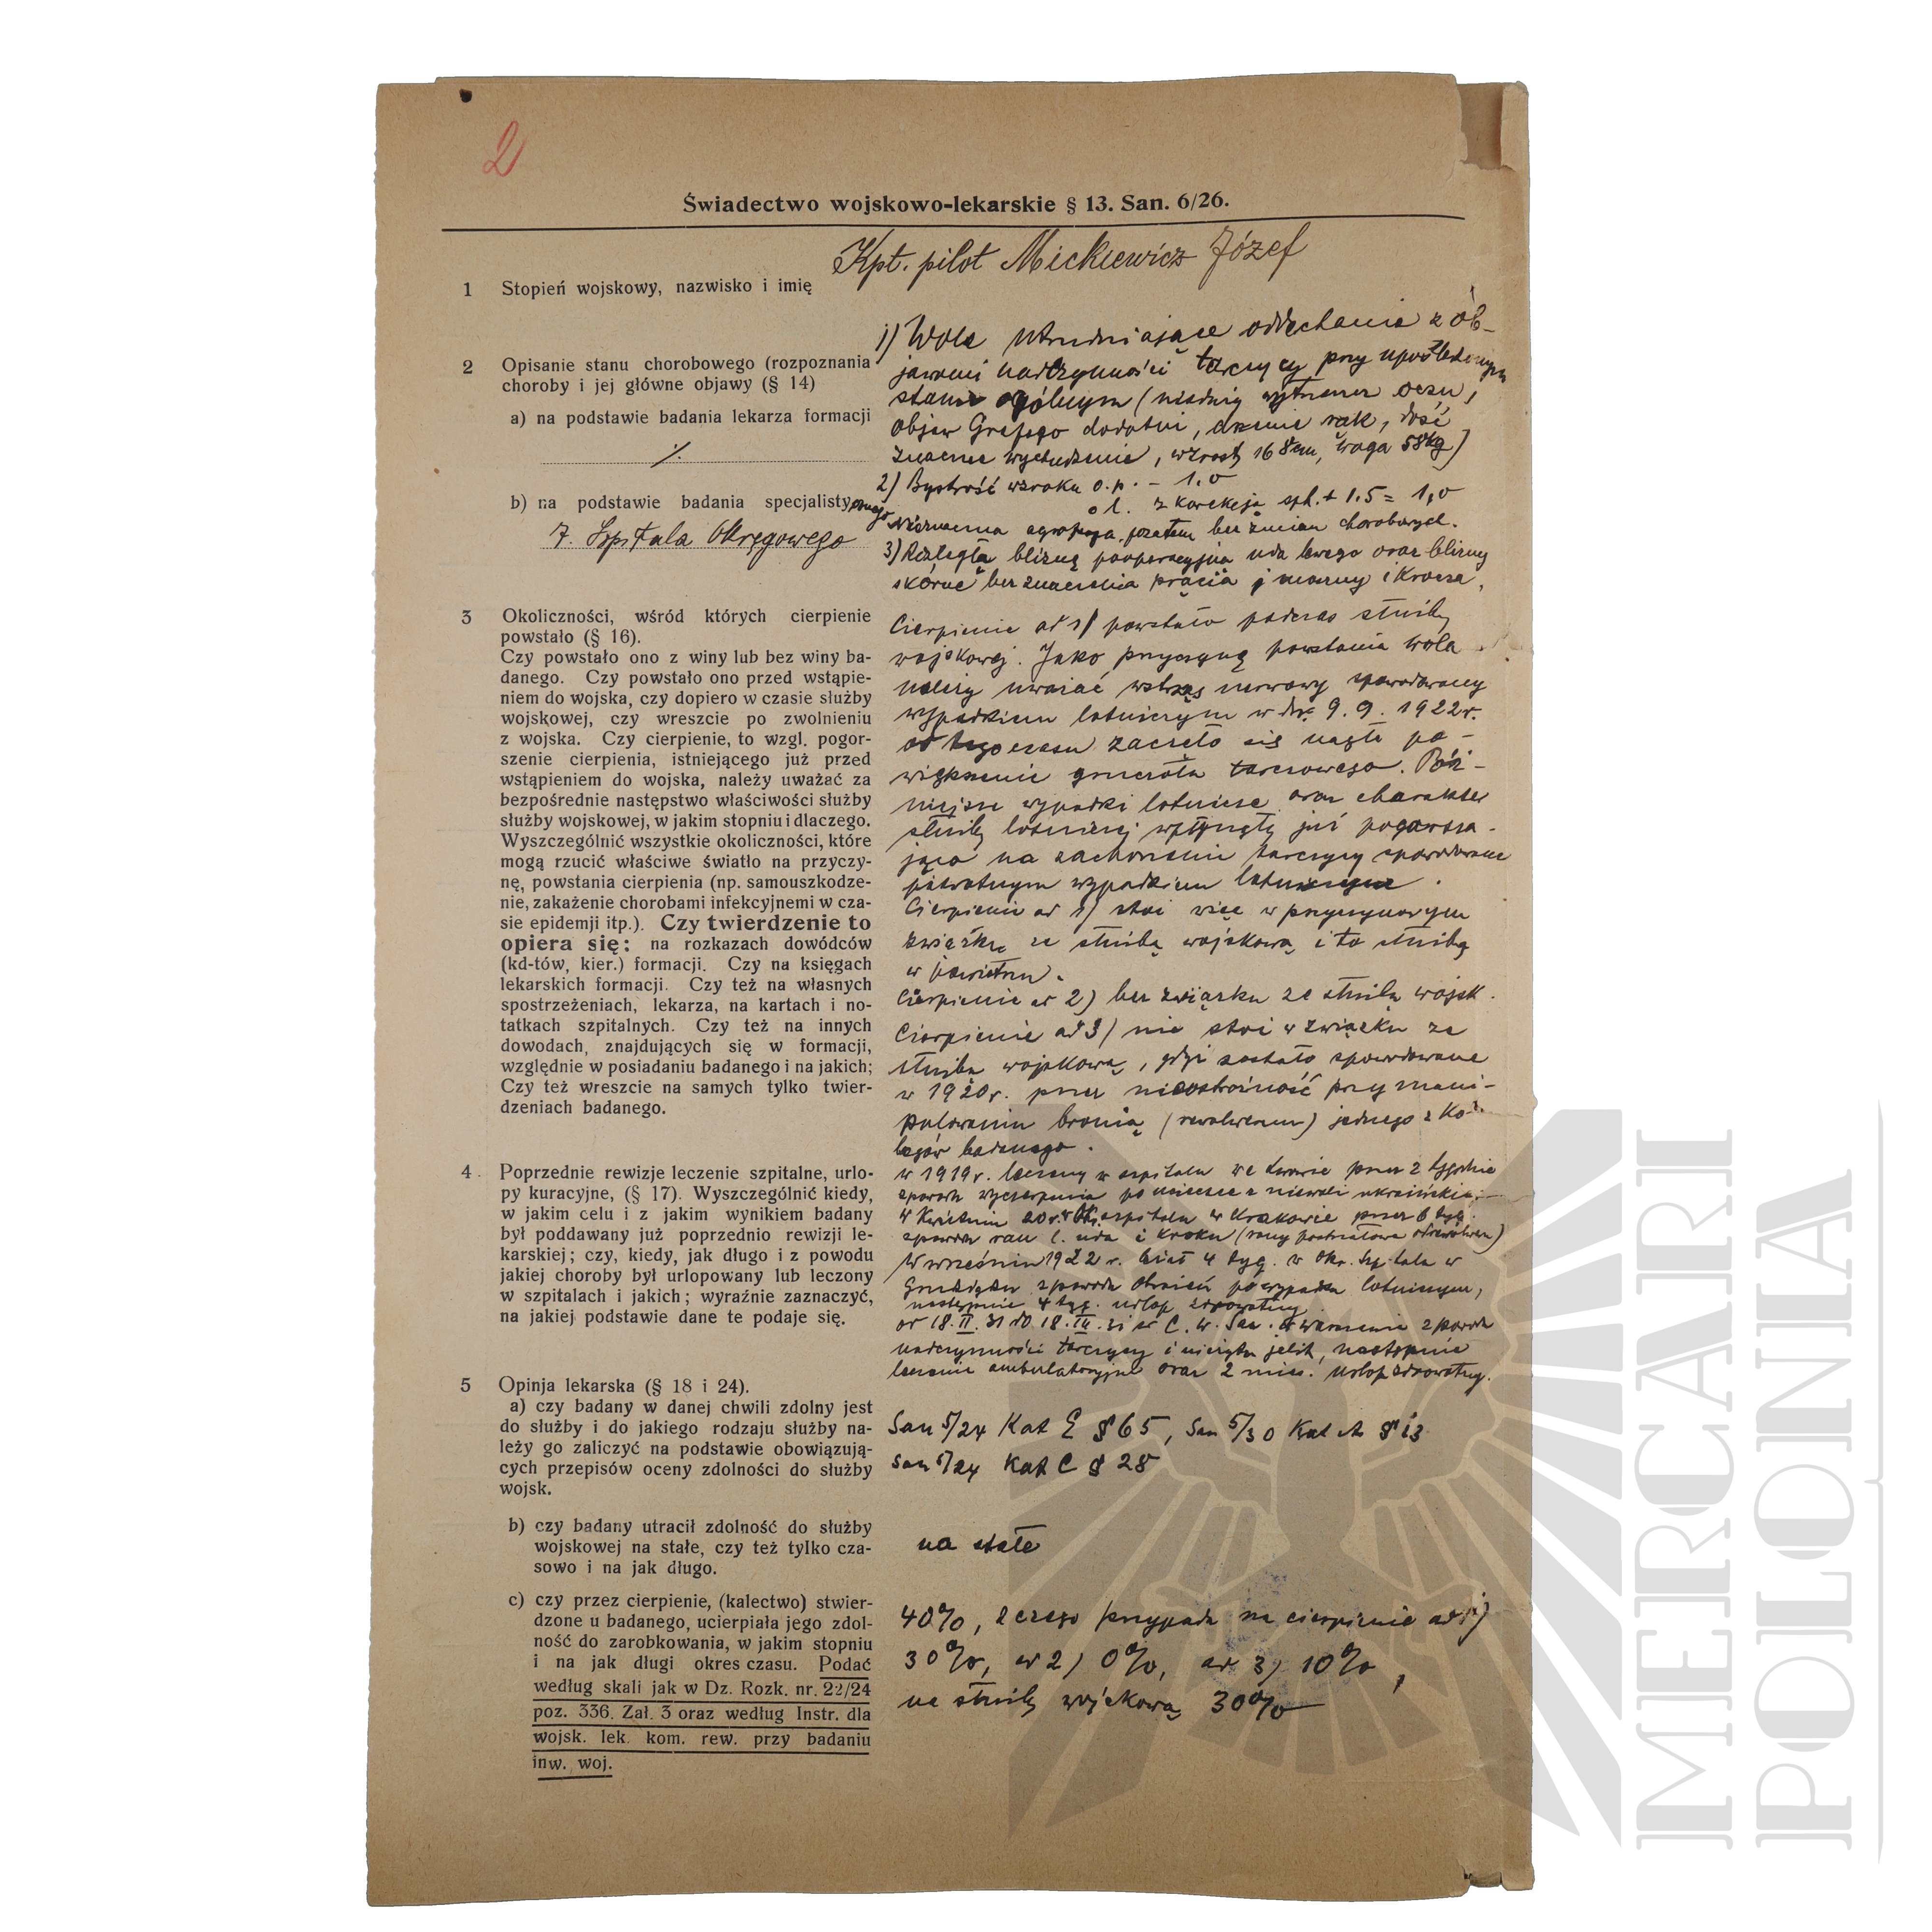 2
Świadectwo wojskowo-lekarskie § 13. San. 6/26.
1 Stopień wojskowy, nazwisko i imię
Kpt. pilot Mickiewicz Józef
2 Opisanie stanu chorobowego (rozpoznania
choroby i jej główne objawy (§ 14)
a) na podstawie badania lekarza formacji
b) na podstawie badania specjalistycznego
7. Szpitala Okręgowego
1) Wole utrudniające oddechanie z ob-
jawami nadczynności tarczycy przy upośledzonym
stanie ogólnym (nieduży wytrzeszcz oczu,
objaw Grefego dodatni, drżenie rąk, dość
znaczne wychudzenie, wzrost 168 cm, waga 58 kg)
2) Bystrość wzroku o. p. – 1,0
o l. z korekcją sph. + 1.5 = 1,0
pozatem bez zmian chorobowych.
3) Rozległa blizna pooperacyjna uda lewego oraz blizny
skórne bez znaczenia prącia i moszny i krocza,
3 Okoliczności, wśród których cierpienie
powstało (§ 16).
Czy powstało ono z winy lub bez winy ba-
danego. Czy powstało ono przed wstąpie-
niem do wojska, czy dopiero w czasie służby
wojskowej, czy wreszcie po zwolnieniu
z wojska. Czy cierpienie, to wzgl. pogor-
szenie cierpienia, istniejącego już przed
wstąpieniem do wojska, należy uważać za
bezpośrednie następstwo właściwości służby
służby wojskowej, w jakim stopniu i dlaczego.
Wyszczególnić wszystkie okoliczności, które
mogą rzucić właściwe światło na przyczy-
nę, powstania cierpienia (np. samouszkodze-
nie, zakażenie chorobami infekcyjnemi w cza-
sie epidemji itp.). Czy twierdzenie to
opiera się: na rozkazach dowódców
(kd-tów, kier.) formacji. Czy na księgach
lekarskich formacji. Czy też na własnych
spostrzeżeniach, lekarza, na kartach i no-
tatkach szpitalnych. Czy też na innych
dowodach, znajdujących się w formacji,
względnie w posiadaniu badanego i na jakich;
Czy też wreszcie na samych tylko twier-
dzeniach badanego.
Cierpienie ad 1) powstało podczas służby
wojskowej. Jako przyczynę powstania wola
należy uważać wstrząs nerwowy spowodowany
wypadkiem lotniczym w dn. 9. 9. 1922 r.
od tego czasu zaczęło się nagłe po-
większenie gruczołu tarczowego. Póź-
niejsze wypadki lotnicze oraz charakter
służby lotniczej wpłynęły już pogarsza-
jąco na zachorzenie tarczycy spowodowane
pierwotnym wypadkiem lotniczym.
Cierpienie ad 1) stoi więc w przyczynowym
związku ze służbą wojskową i to służbą
w powietrzu.
Cierpienie ad 2) bez związku ze służbą wojsk.
Cierpienie ad 3) nie stoi w związku ze
służbą wojskową, gdyż zostało spowodowane
w 1920 r. przez nieostrożność przy mani-
pulowaniu bronią (rewolwerem) jednego z ko-
legów badanego.
4. Poprzednie rewizje leczenie szpitalne, urlo-
py kuracyjne, (§ 17). Wyszczególnić kiedy,
w jakim celu i z jakim wynikiem badany
był poddawany już poprzednio rewizji le-
karskiej; czy, kiedy, jak długo i z powodu
jakiej choroby był urlopowany lub leczony
w szpitalach i jakich; wyraźnie zaznaczyć,
na jakiej podstawie dane te podaje się.
w 1919 r. leczony w szpitalu we Lwowie przez 2 tygodnie
z powodu wyczerpania po ucieczce z niewoli ukraińskiej.
w kwietniu 20 r. w Okr. szpitalu w Krakowie przez 6 tyg.
z powodu ran l. uda i kroku (rany postrzałowe
W wrześniu 1922 r. leżał 4 tyg. w Okr. Szpitalu w
Grudziądzu z powodu obrażeń po wypadku lotniczym,
następnie 4 tyg. urlop zdrowotny.
od 18. II. 31 do 18. 31 w C. W. San. w Warszawie z powodu
nadczynności tarczycy i nieżytu jelit, następnie
leczenie ambulatoryjne oraz 2 mies. urlop zdrowotny.
5 Opinja lekarska (§ 18 i 24).
a) czy badany w danej chwili zdolny jest
do służby i do jakiego rodzaju służby na-
leży go zaliczyć na podstawie obowiązują-
cych przepisów oceny zdolności do służby
wojsk.
San 5/24 Kat E § 65, San 5/30 Kat A § 13
San 5/24 Kat C § 28
b) czy badany utracił zdolność do służby
wojskowej na stałe, czy też tylko cza-
sowo i na jak długo.
na stałe
c) czy przez cierpienie, (kalectwo) stwier-
dzone u badanego, ucierpiała jego zdol-
ność do zarobkowania, w jakim stopniu
i na jak długi okres czasu. Podać
według skali jak w Dz. Rozk. nr. 22/24
poz. 336. Zał. 3 oraz według Instr. dla
wojsk. lek. kom. rew. przy badaniu
inw. woj.
40%, z czego przypada na cierpienie ad 1)
30%, ad 2) 0%, ad 3) 10%,
na służbę wojskową 30%
MERCARI
POLONIA